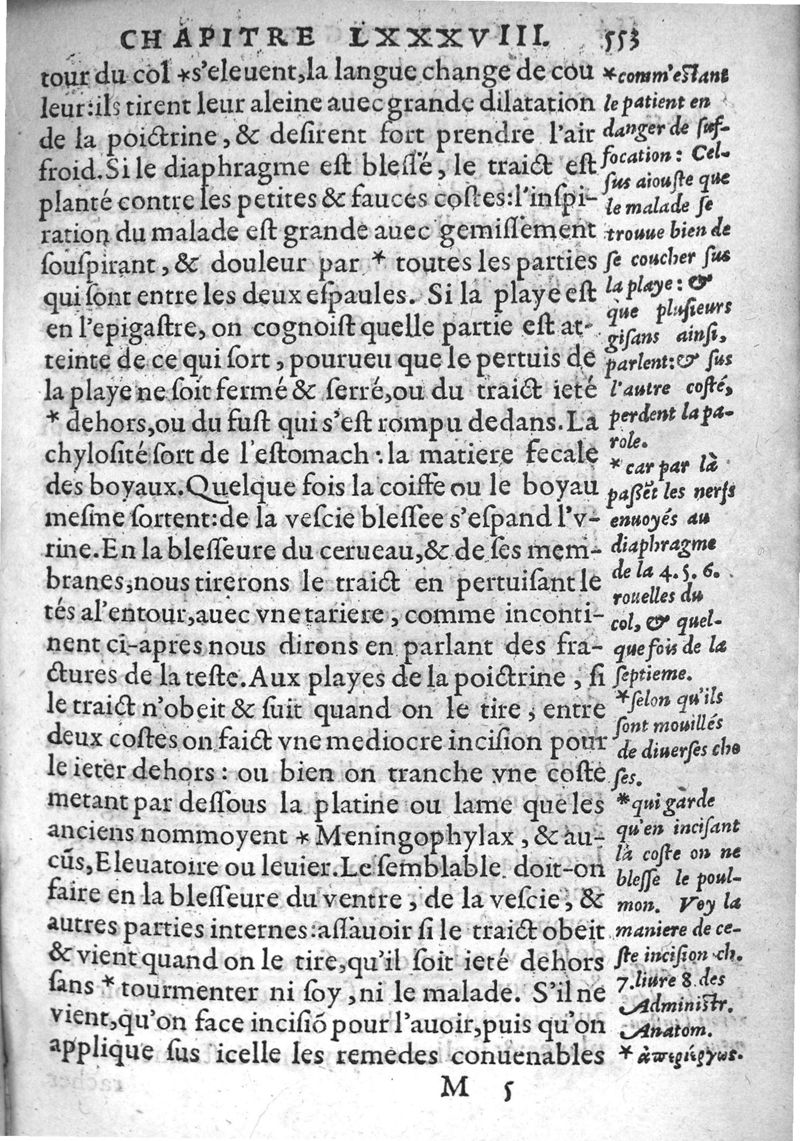 CHAPITRE LXXXVIII. 553
tour du col *s'eleuent,la langue change de cou
leur:ils tirent leur aleine auec grande dilatation
de la poictrine, & desirent fort prendre l'air
froid. Si le diaphragme est blessé, le traict est
planté contre les petites & fauces costes:l'inspi-
ration du malade est grande auec gemissement
souspirant, & douleur par * toutes les parties
qui sont entre les deux espaules. Si la playe est
en l'epigastre, on cognoist quelle partie est at-
teinte de ce qui sort, pourueu que le pertuis de
la playe ne soit fermé & serré,ou du traict ieté
* dehors,ou du fust qui s'est rompu dedans. La
chylosité sort de l'estomach : la matiere fecale
des boyaux. Quelque fois la coiffe ou le boyau
mesme sortent:de la vescie blessee s'espand l'v-
rine. En la blesseure du cerueau,& de ses mem-
branes,nous tirerons le traict en pertuisant le
tés al'entour,auec vne tariere, comme inconti-
nent ci-apres nous dirons en parlant des fra-
ctures de la teste. Aux playes de la poictrine, si
le traict n'obeit & suit quand on le tire, entre
deux costes on faict vne mediocre incision pour
le ieter dehors: ou bien on tranche vne coste
metant par dessous la platine ou lame que les
anciens nommoyent * Meningophylax, & au-
cūs, Eleuatoire ou leuier. Le semblable doit-on
faire en la blesseure du ventre, de la vescie, &
autres parties internes:assauoir si le traict obeit
& vient quand on le tire,qu'il soit ieté dehors
sans * tourmenter ni soy, ni le malade. S'il ne
vient,qu'on face incisiõ pour l'auoir,puis qu'on
applique sus icelle les remedes conuenables
*comm'estant
le patient en
danger de suf-
focation: Cel-
sus aiouste que
le malade se
trouue bien de
se coucher sus
la playe: &
que plusieurs
gisans ainsi,
parlent: & sus
l'autre costé,
perdent la pa-
role.
* car par là
passẽt les nerfs
enuoyés au
diaphragme
de la 4. 5. 6.
rouelles du
col, & quel-
que fois de la
septieme.
*selon qu'ils
sont mouillés
de diuerses cho
ses.
*qui garde
qu'en incisant
la coste on ne
blesse le poul-
mon. Voy la
maniere de ce-
ste incision ch.
7. liure 8. des
Administr.
Anatom.
* ἀπεριέργως.
M 5